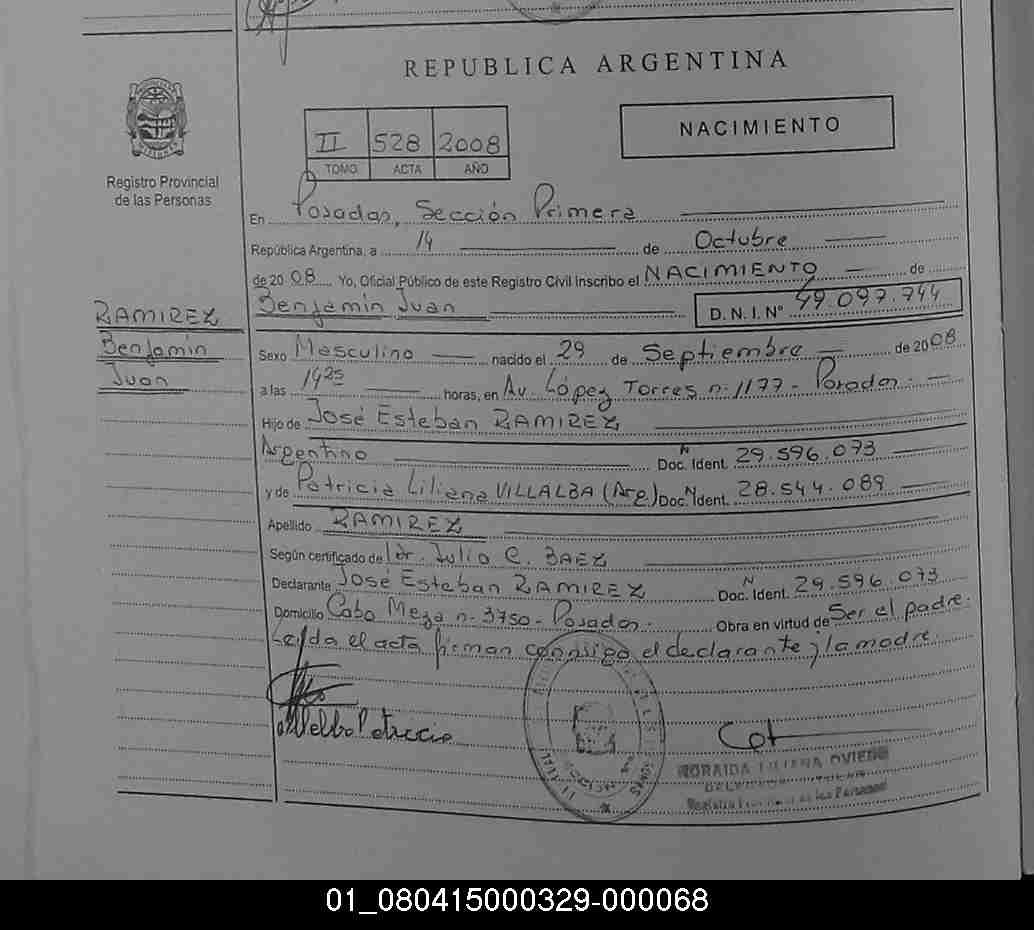 REPUBLICA ARGENTINA
NACIMIENTO
II 528 2008
TOMO ACTA AÑO
Registro Provincial
de las Personas
En Posadas, Sección Primera
República Argentina, a 14 de Octubre
de 20 08 Yo, Oficial Público de este Registro Civil Inscribo el NACIMIENTO de
Benjamín Juan D. N. I. Nº 49.097.744
RAMIREZ
Benjamín
Juan
Sexo Masculino nacido el 29 de Septiembre de 20 08
a las 1925 horas, en Av. López Torres n· 1177 - Posadas.
Hijo de José Esteban RAMIREZ
Argentino Doc. Ident. N 29.596.073
y de Patricia Liliana VILLALBA (Arg.) Doc. Ident. N 28.544.089
Apellido RAMIREZ
Según certificado de Dr. Julio C. BAEZ
Declarante José Esteban RAMIREZ Doc. Ident. N 29.596.073
Domicilio Cabo Meza n· 3750 - Posadas. Obra en virtud de Ser el padre.
Leída el acta firman conmigo el declarante y la madre.
Villalba Patricia
NORAIDA LILIANA OVIEDO
Registro Provincial de las Personas
01_080415000329-000068